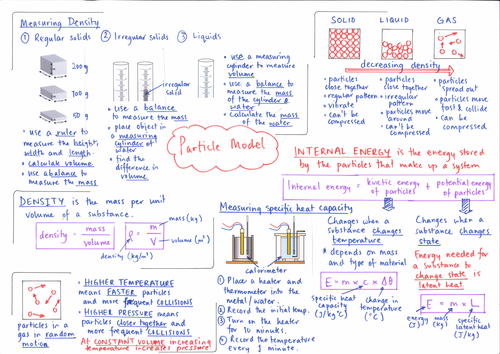 Measuring Density
① Regular solids
② Irregular solids
③ Liquids
200g
100g
50g
• use a ruler to
measure the height,
width and length.
• calculate volume
• use a balance to
measure the mass
irregular
solid
• use a balance
to measure the mass
• place object in
a measuring
cylinder of
water
• find the
difference in
volume
• use a measuring
cylinder to measure
volume
• use a balance to
measure the mass
of the cylinder &
water
• calculate the mass
of the water.
Particle Model
SOLID
LIQUID
GAS
decreasing density
• particles
close together
• regular pattern
• vibrate
• can't be
compressed
• particles
close together
• irregular
pattern
• particles move
around
• can't be
compressed
• particles
spread out
• particles move
fast & collide
• can be
compressed
INTERNAL ENERGY is the energy stored
by the particles that make up a system
Internal energy = kinetic energy of particles + potential energy of particles
Changes when a
substance changes
temperature
* depends on mass
and type of material
E = m x c x Δθ
specific heat
capacity
(J/kg°C)
change in
temperature
(°C)
Changes when a
substance changes
state
Energy needed for
a substance to
change state is
latent heat
E = m x L
energy
(J)
mass
(kg)
specific
latent heat
(J/kg)
DENSITY is the mass per unit
volume of a substance.
density = mass / volume
ρ = m / V
mass (kg)
volume (m³)
density (kg/m³)
Measuring specific heat capacity
calorimeter
① Place a heater and
thermometer into the
metal/water.
② Record the initial temp.
③ Turn on the heater
for 10 minutes.
④ Record the temperature
every 1 minute.
particles in a
gas in random
motion
• HIGHER TEMPERATURE
means FASTER particles
and more frequent COLLISIONS
• HIGHER PRESSURE means
particles closer together and
more frequent COLLISIONS.
At CONSTANT VOLUME increasing
temperature increases pressure!